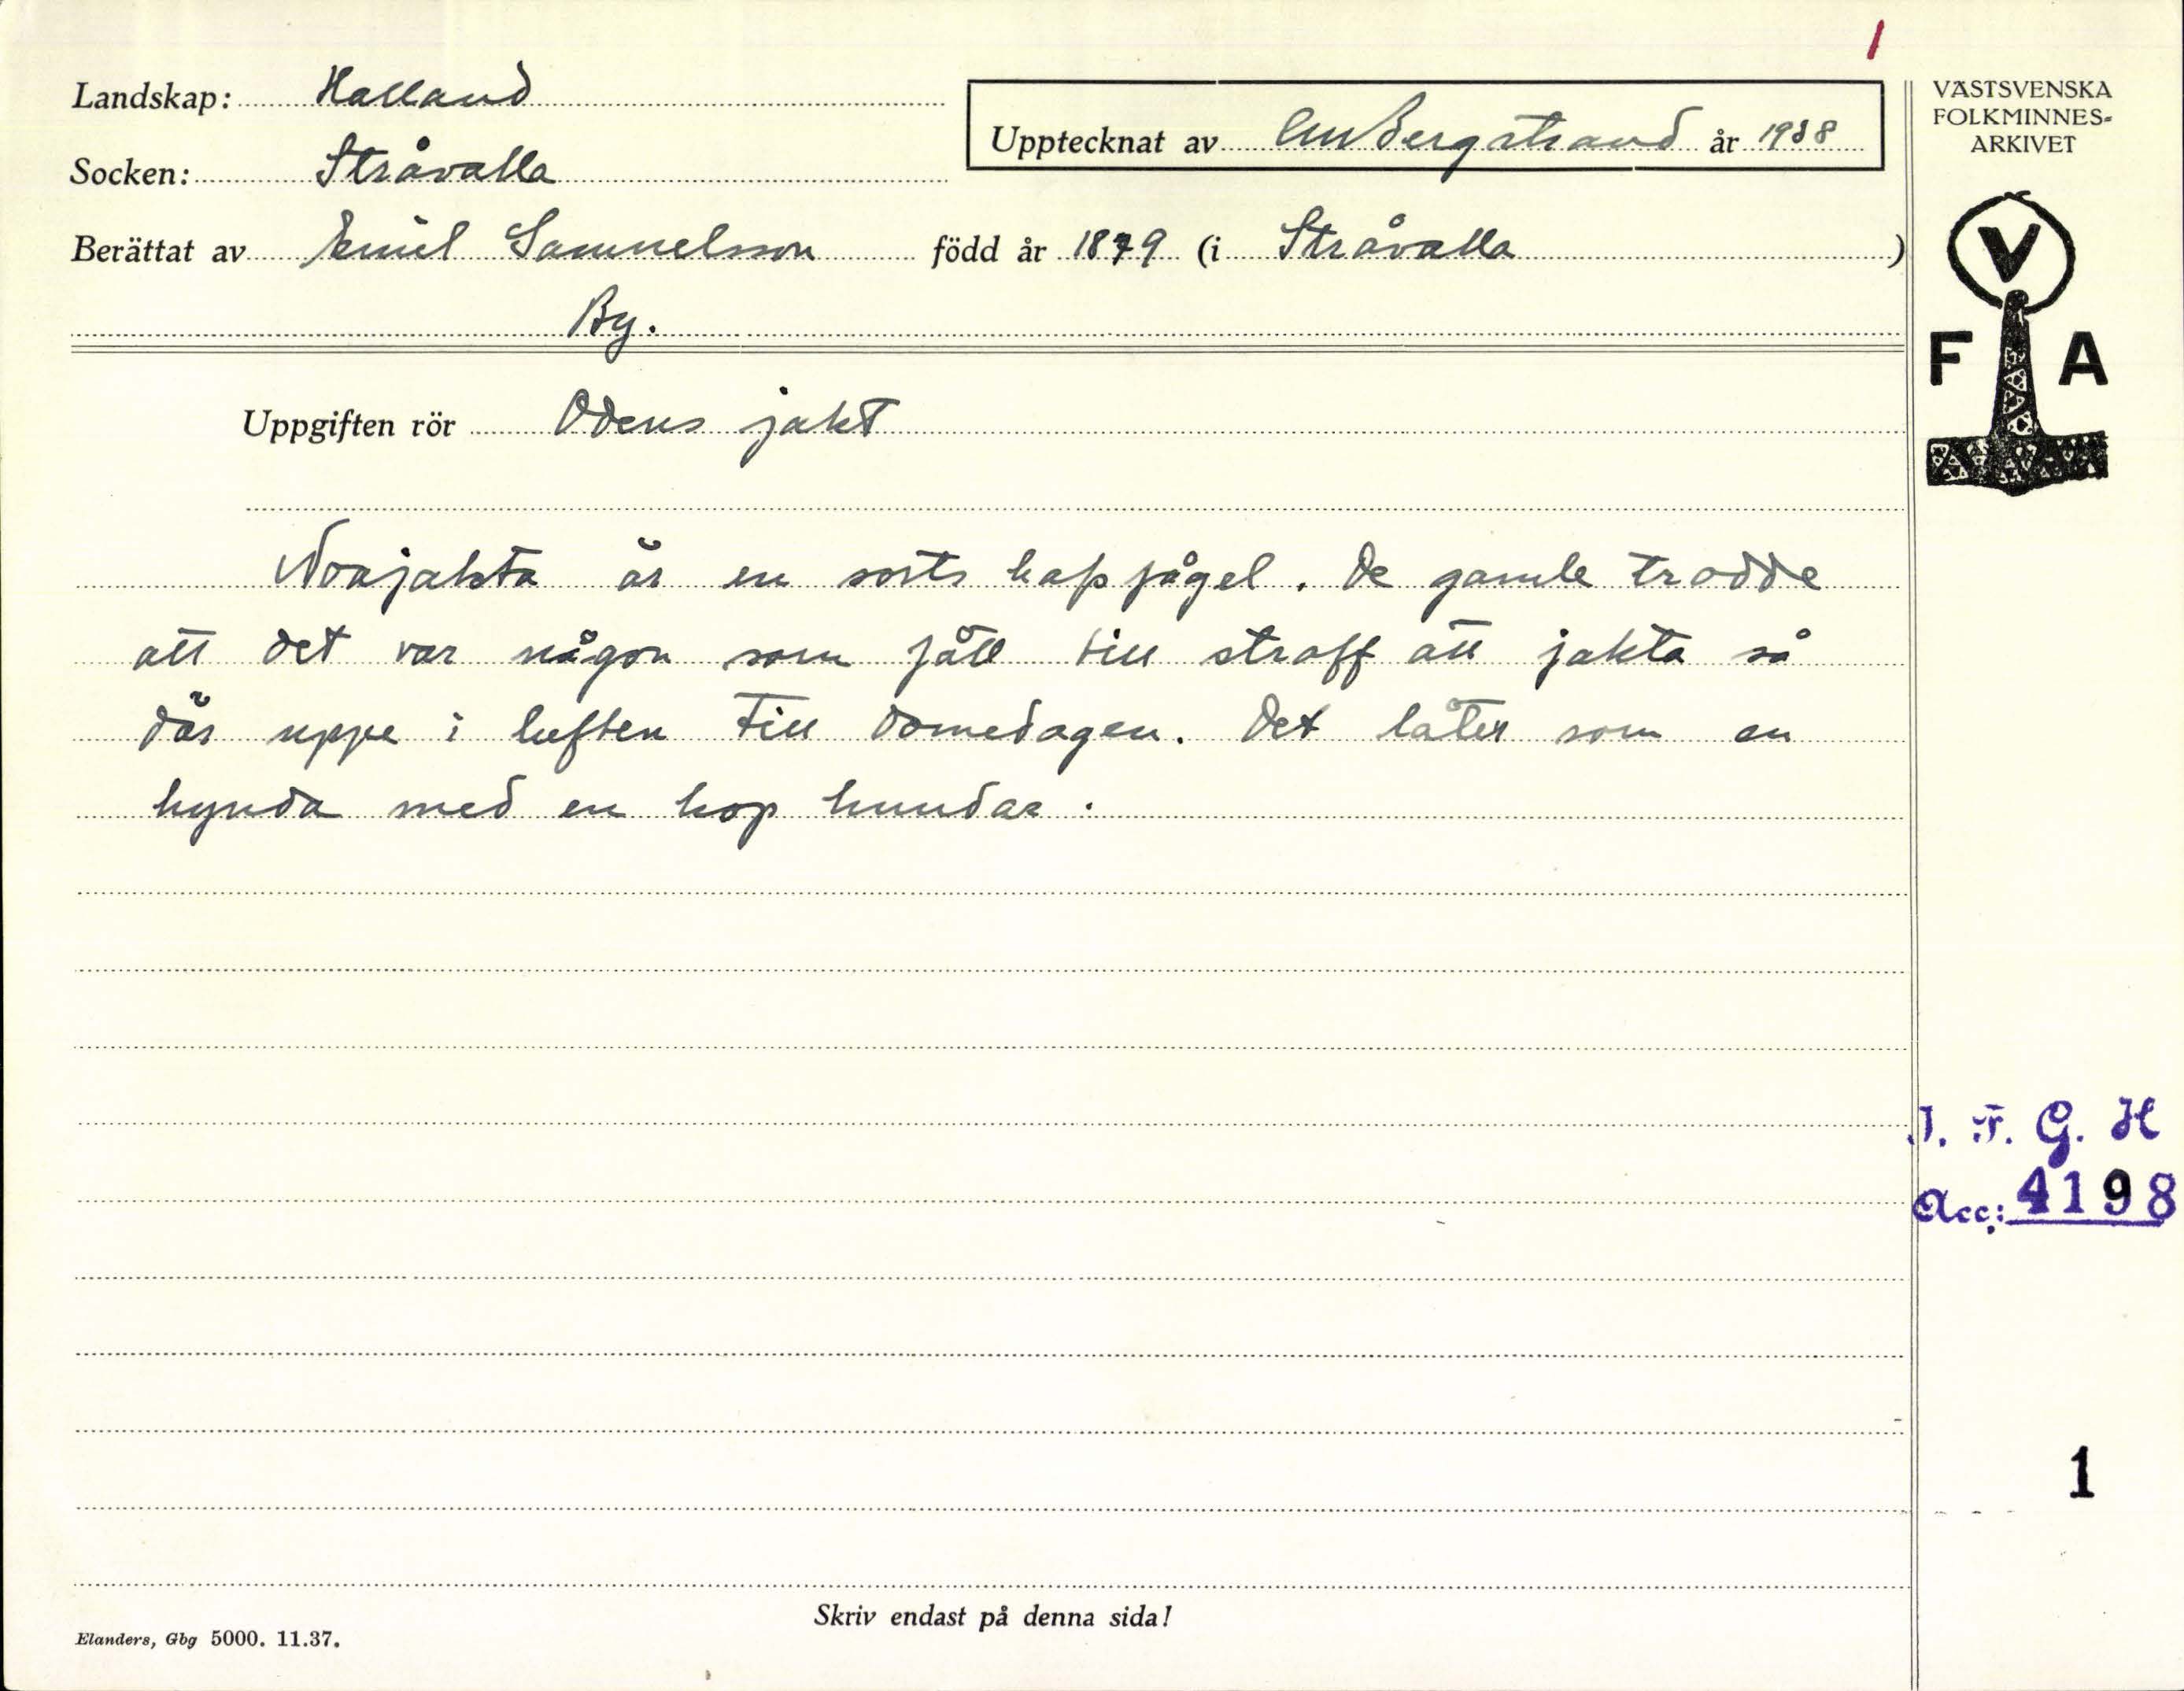 1
Landskap: Halland
Upptecknat av CM Bergstrand år 1938
Socken: Stråvalla
Berättat av Emil Samuelsson född år 1879 (i Stråvalla )
By.
VÄSTSVENSKA
FOLKMINNES-
ARKIVET
V
F A
Uppgiften rör Odens jakt
Noajakta är en sorts hafsfågel. De gamle trodde
att det var någon som fått till straff att jakta så
där uppe i luften till domedagen. Det låter som en
hynda med en hop hundar.
I. F. G. H
Acc: 4198
1
Skriv endast på denna sida!
Elanders, Gbg 5000. 11.37.